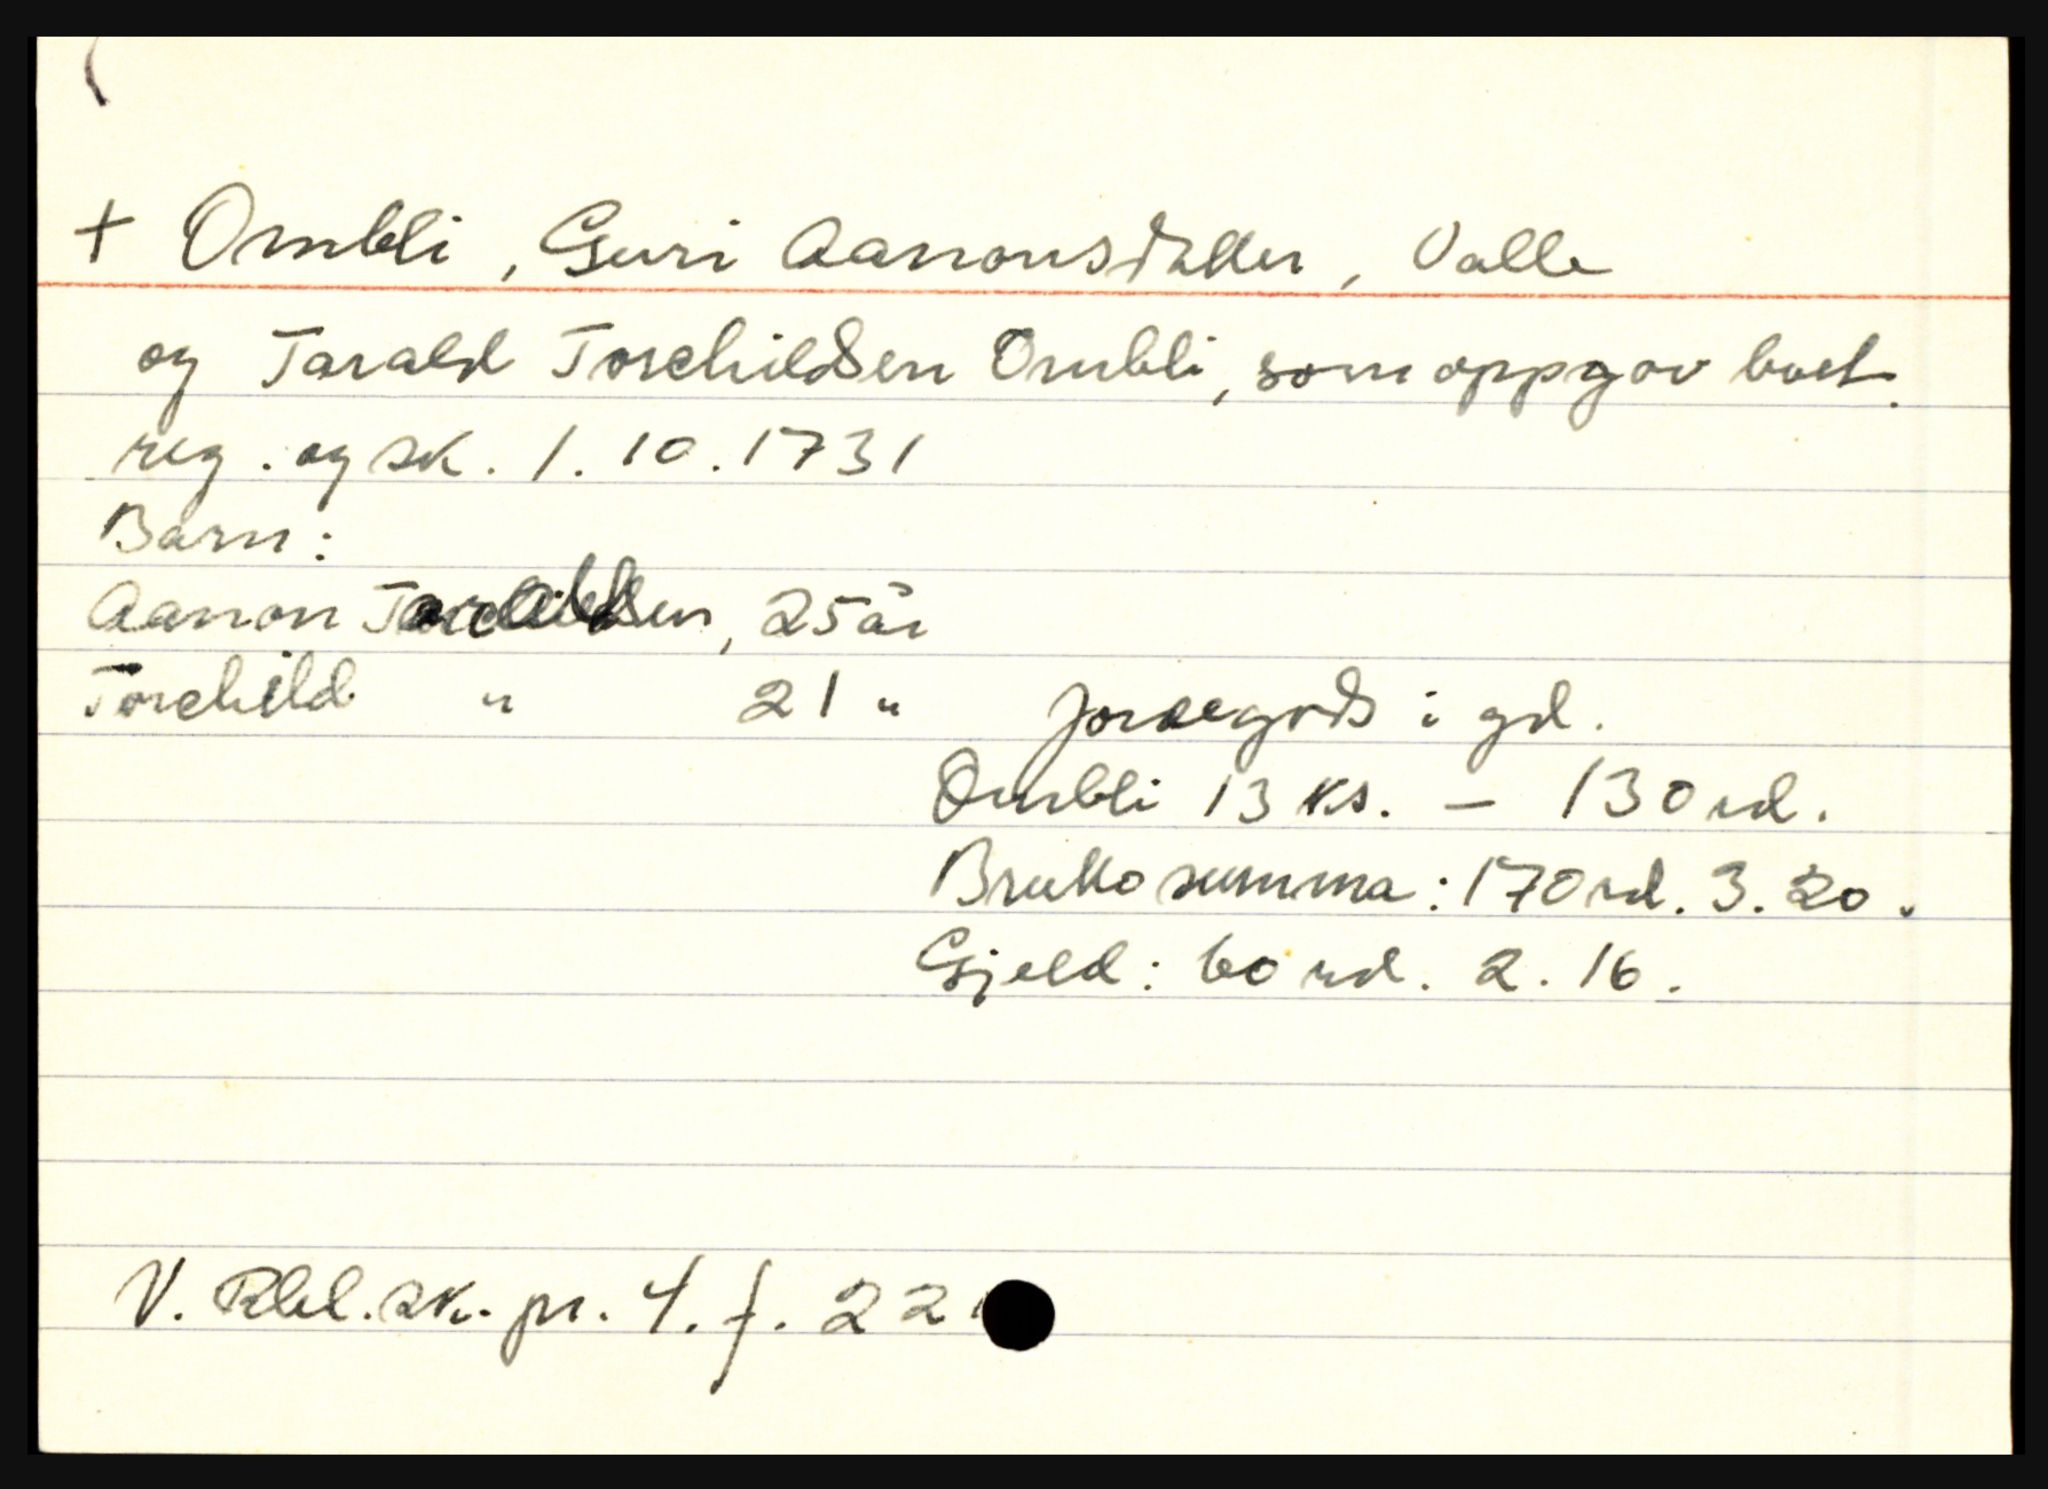 + Ombli, Guri Aanonsdatter, Valle
og Tarald Torchildsen Ombli, som oppgav boet.
reg. og sk. 1.10.1731
Barn:
Aanon Taraldsen, 25 år
Torchild " 21 "
Jordegods i gd.
Ombli 13 ks. - 130 rd.
Brutto summa: 170 rd. 3. 20.
Gjeld: 60 rd. 2. 16.
V. Rbl. sk. pr. 4. f. 22